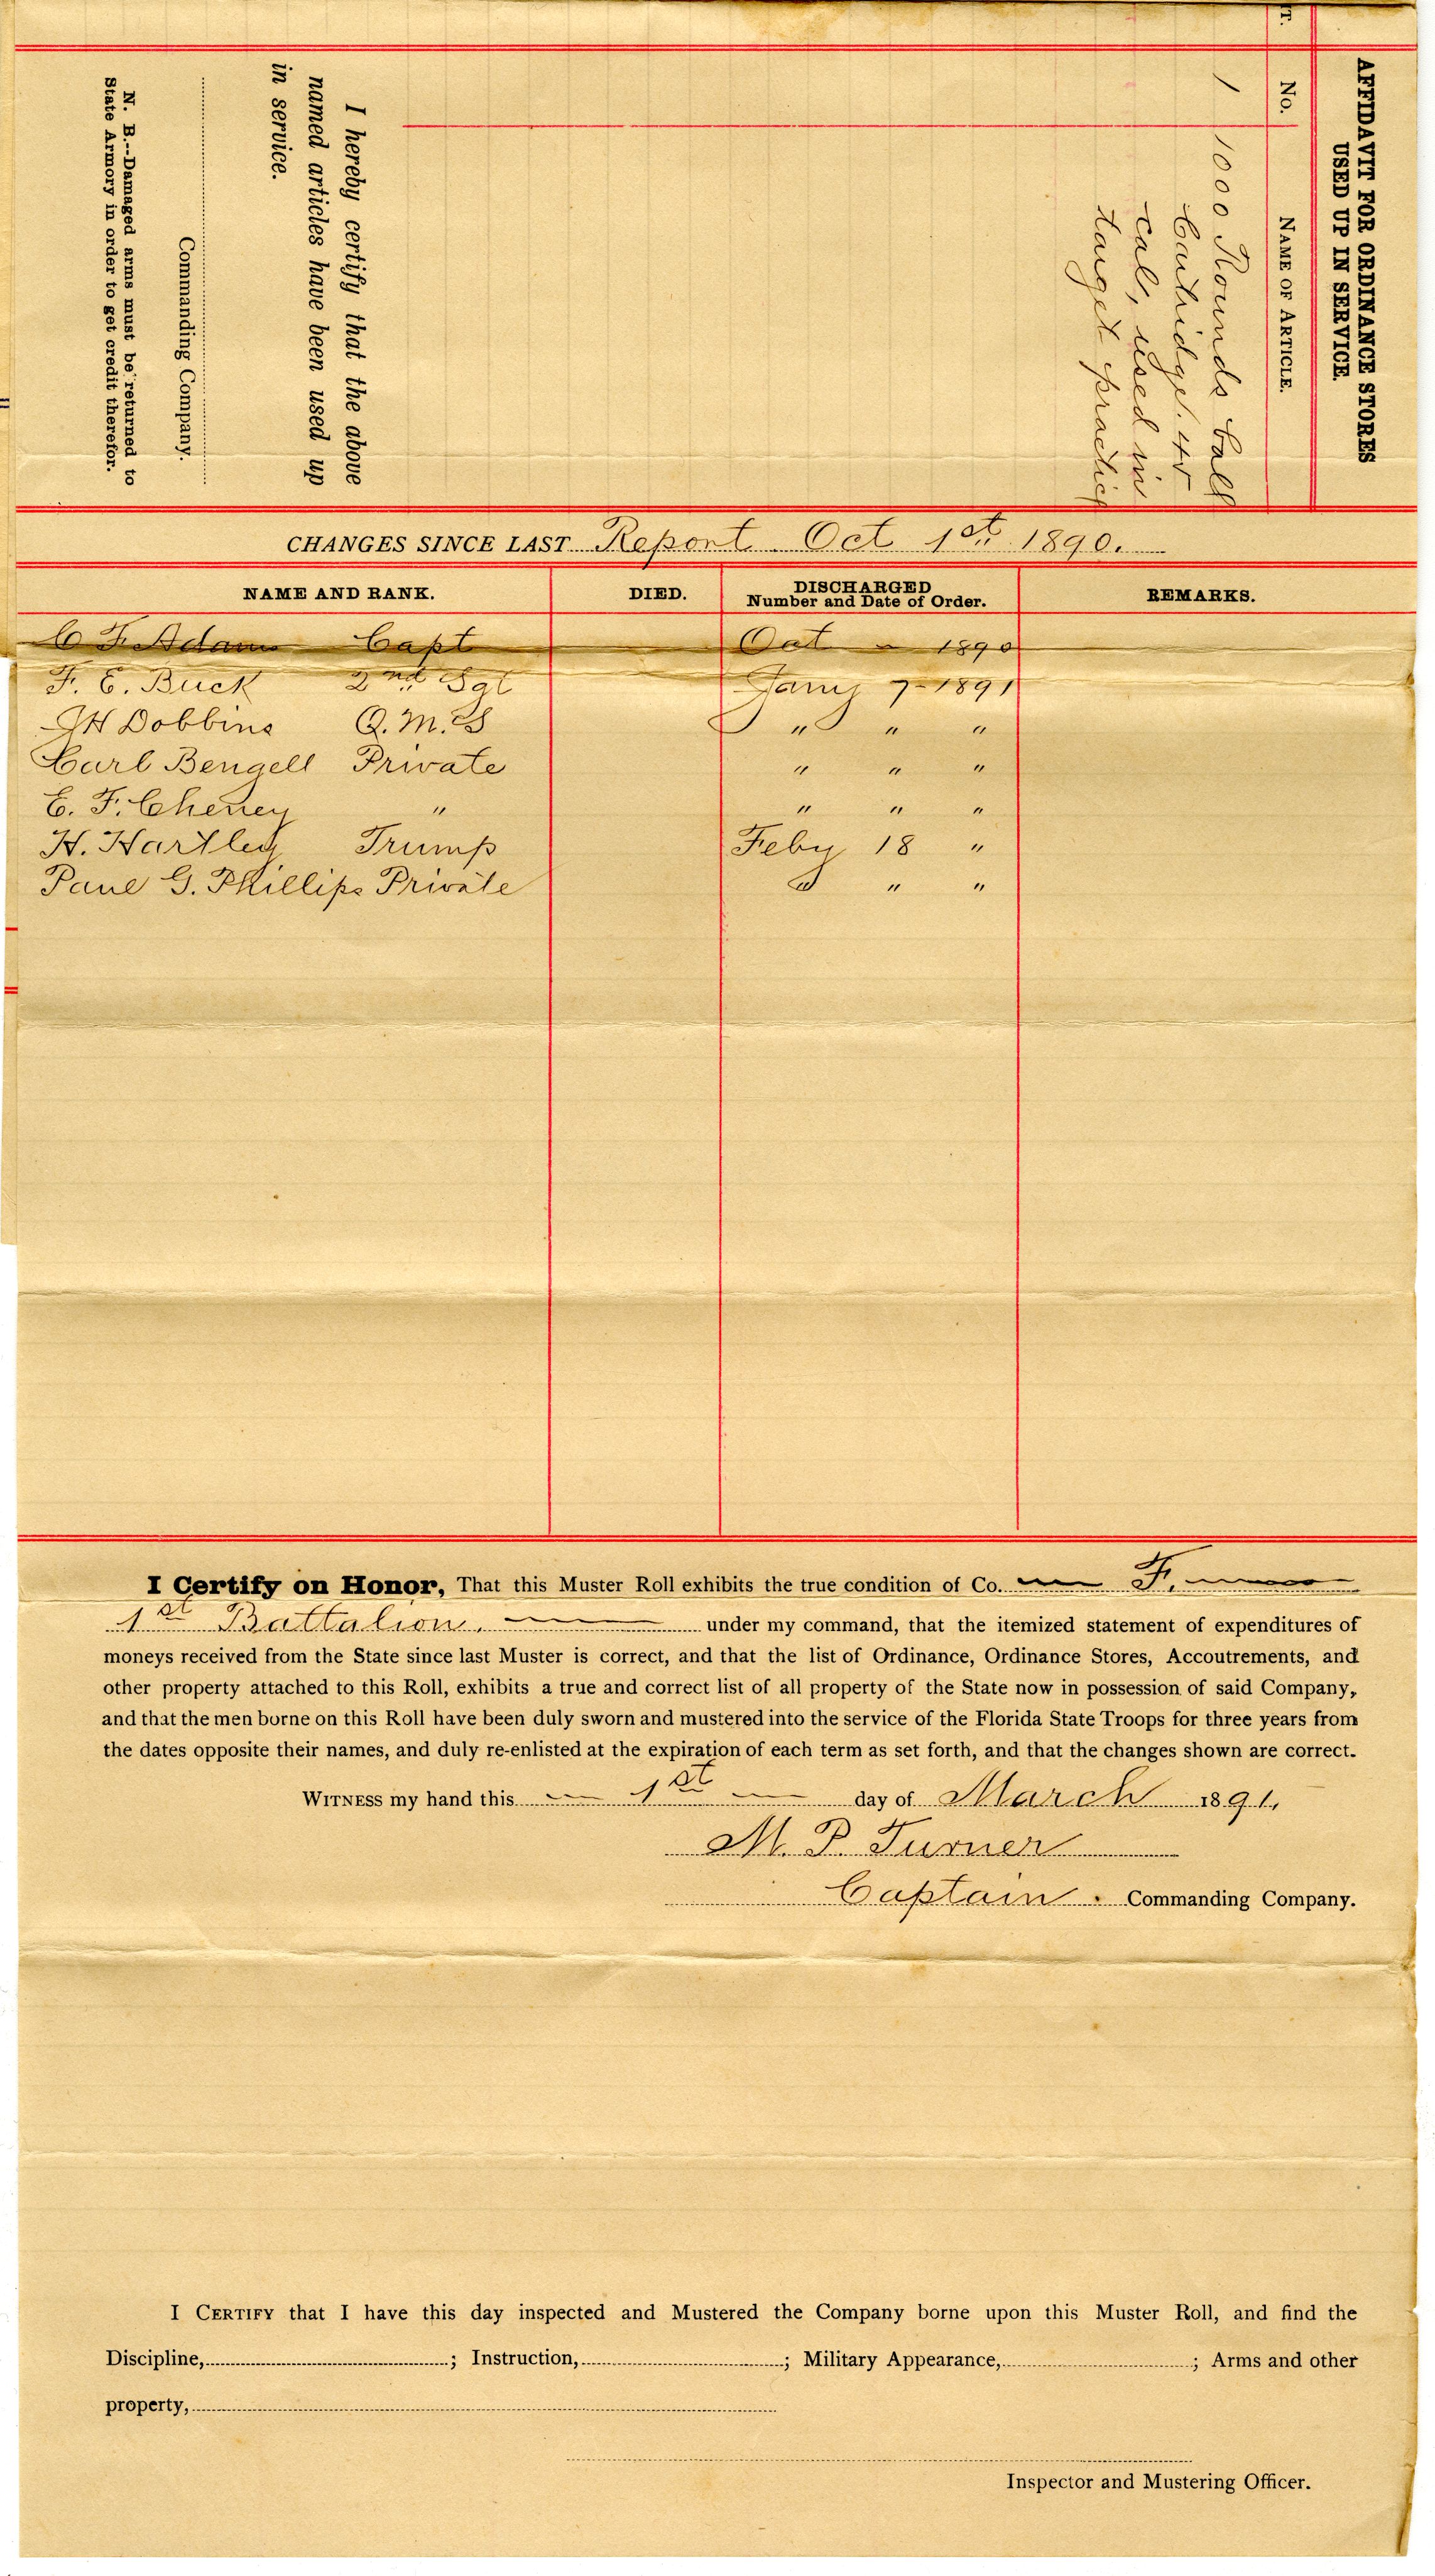 T.
AFFIDAVIT FOR ORDINANCE STORES
USED UP IN SERVICE.
No. NAME OF ARTICLE.
1 1000 Rounds ball
Cartridge. 45
cal, used in
target practice
I hereby certify that the above
named articles have been used up
in service.
Commanding Company.
N. B.--Damaged arms must be returned to
State Armory in order to get credit therefor.
CHANGES SINCE LAST Report Oct 1st 1890.
NAME AND RANK. DIED. DISCHARGED REMARKS.
Number and Date of Order.
C F Adams Capt Oct - 1890
F. E. Buck 2nd Sgt Jany 7-1891
JH Dobbins Q.M.S " " "
Carl Bengell Private " " "
E. F. Cheney " " " "
H. Hartley Trump Feby 18 "
Paul G. Phillips Private " " "
I Certify on Honor, That this Muster Roll exhibits the true condition of Co. F.
1st Battalion. under my command, that the itemized statement of expenditures of
moneys received from the State since last Muster is correct, and that the list of Ordinance, Ordinance Stores, Accoutrements, and
other property attached to this Roll, exhibits a true and correct list of all property of the State now in possession of said Company,
and that the men borne on this Roll have been duly sworn and mustered into the service of the Florida State Troops for three years from
the dates opposite their names, and duly re-enlisted at the expiration of each term as set forth, and that the changes shown are correct.
WITNESS my hand this 1st day of March 1891.
M. P. Turner
Captain. Commanding Company.
I CERTIFY that I have this day inspected and Mustered the Company borne upon this Muster Roll, and find the
Discipline, ; Instruction, ; Military Appearance, ; Arms and other
property,
Inspector and Mustering Officer.